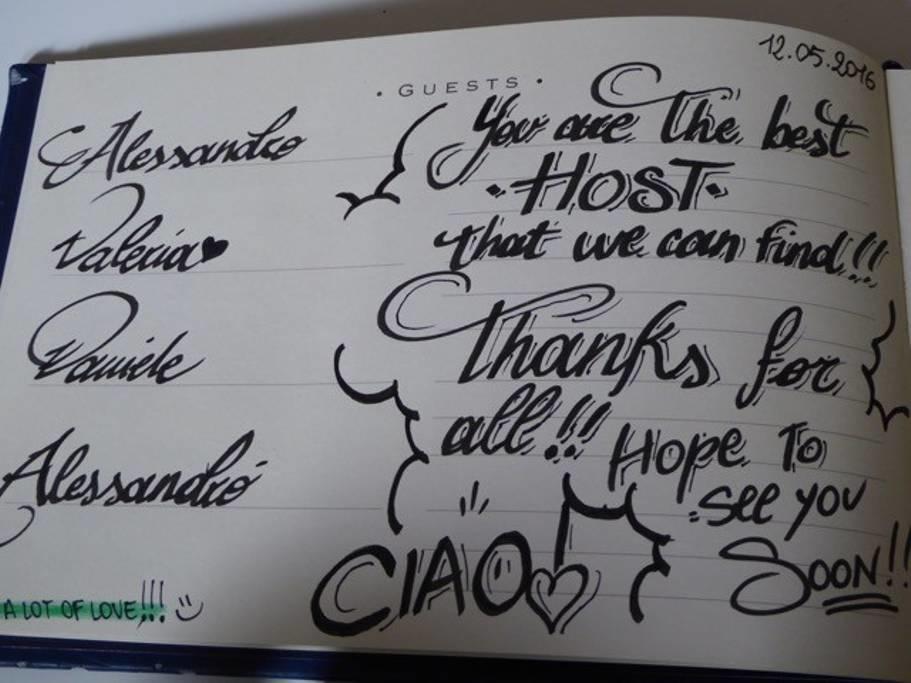 12.05.2016
• GUESTS •
Alessandro
Valeria
Daniele
Alessandro
A LOT OF LOVE!!!
You are the best
• HOST •
that we can find!!
Thanks for
all!!! Hope To
see you
SOON!!
CIAO